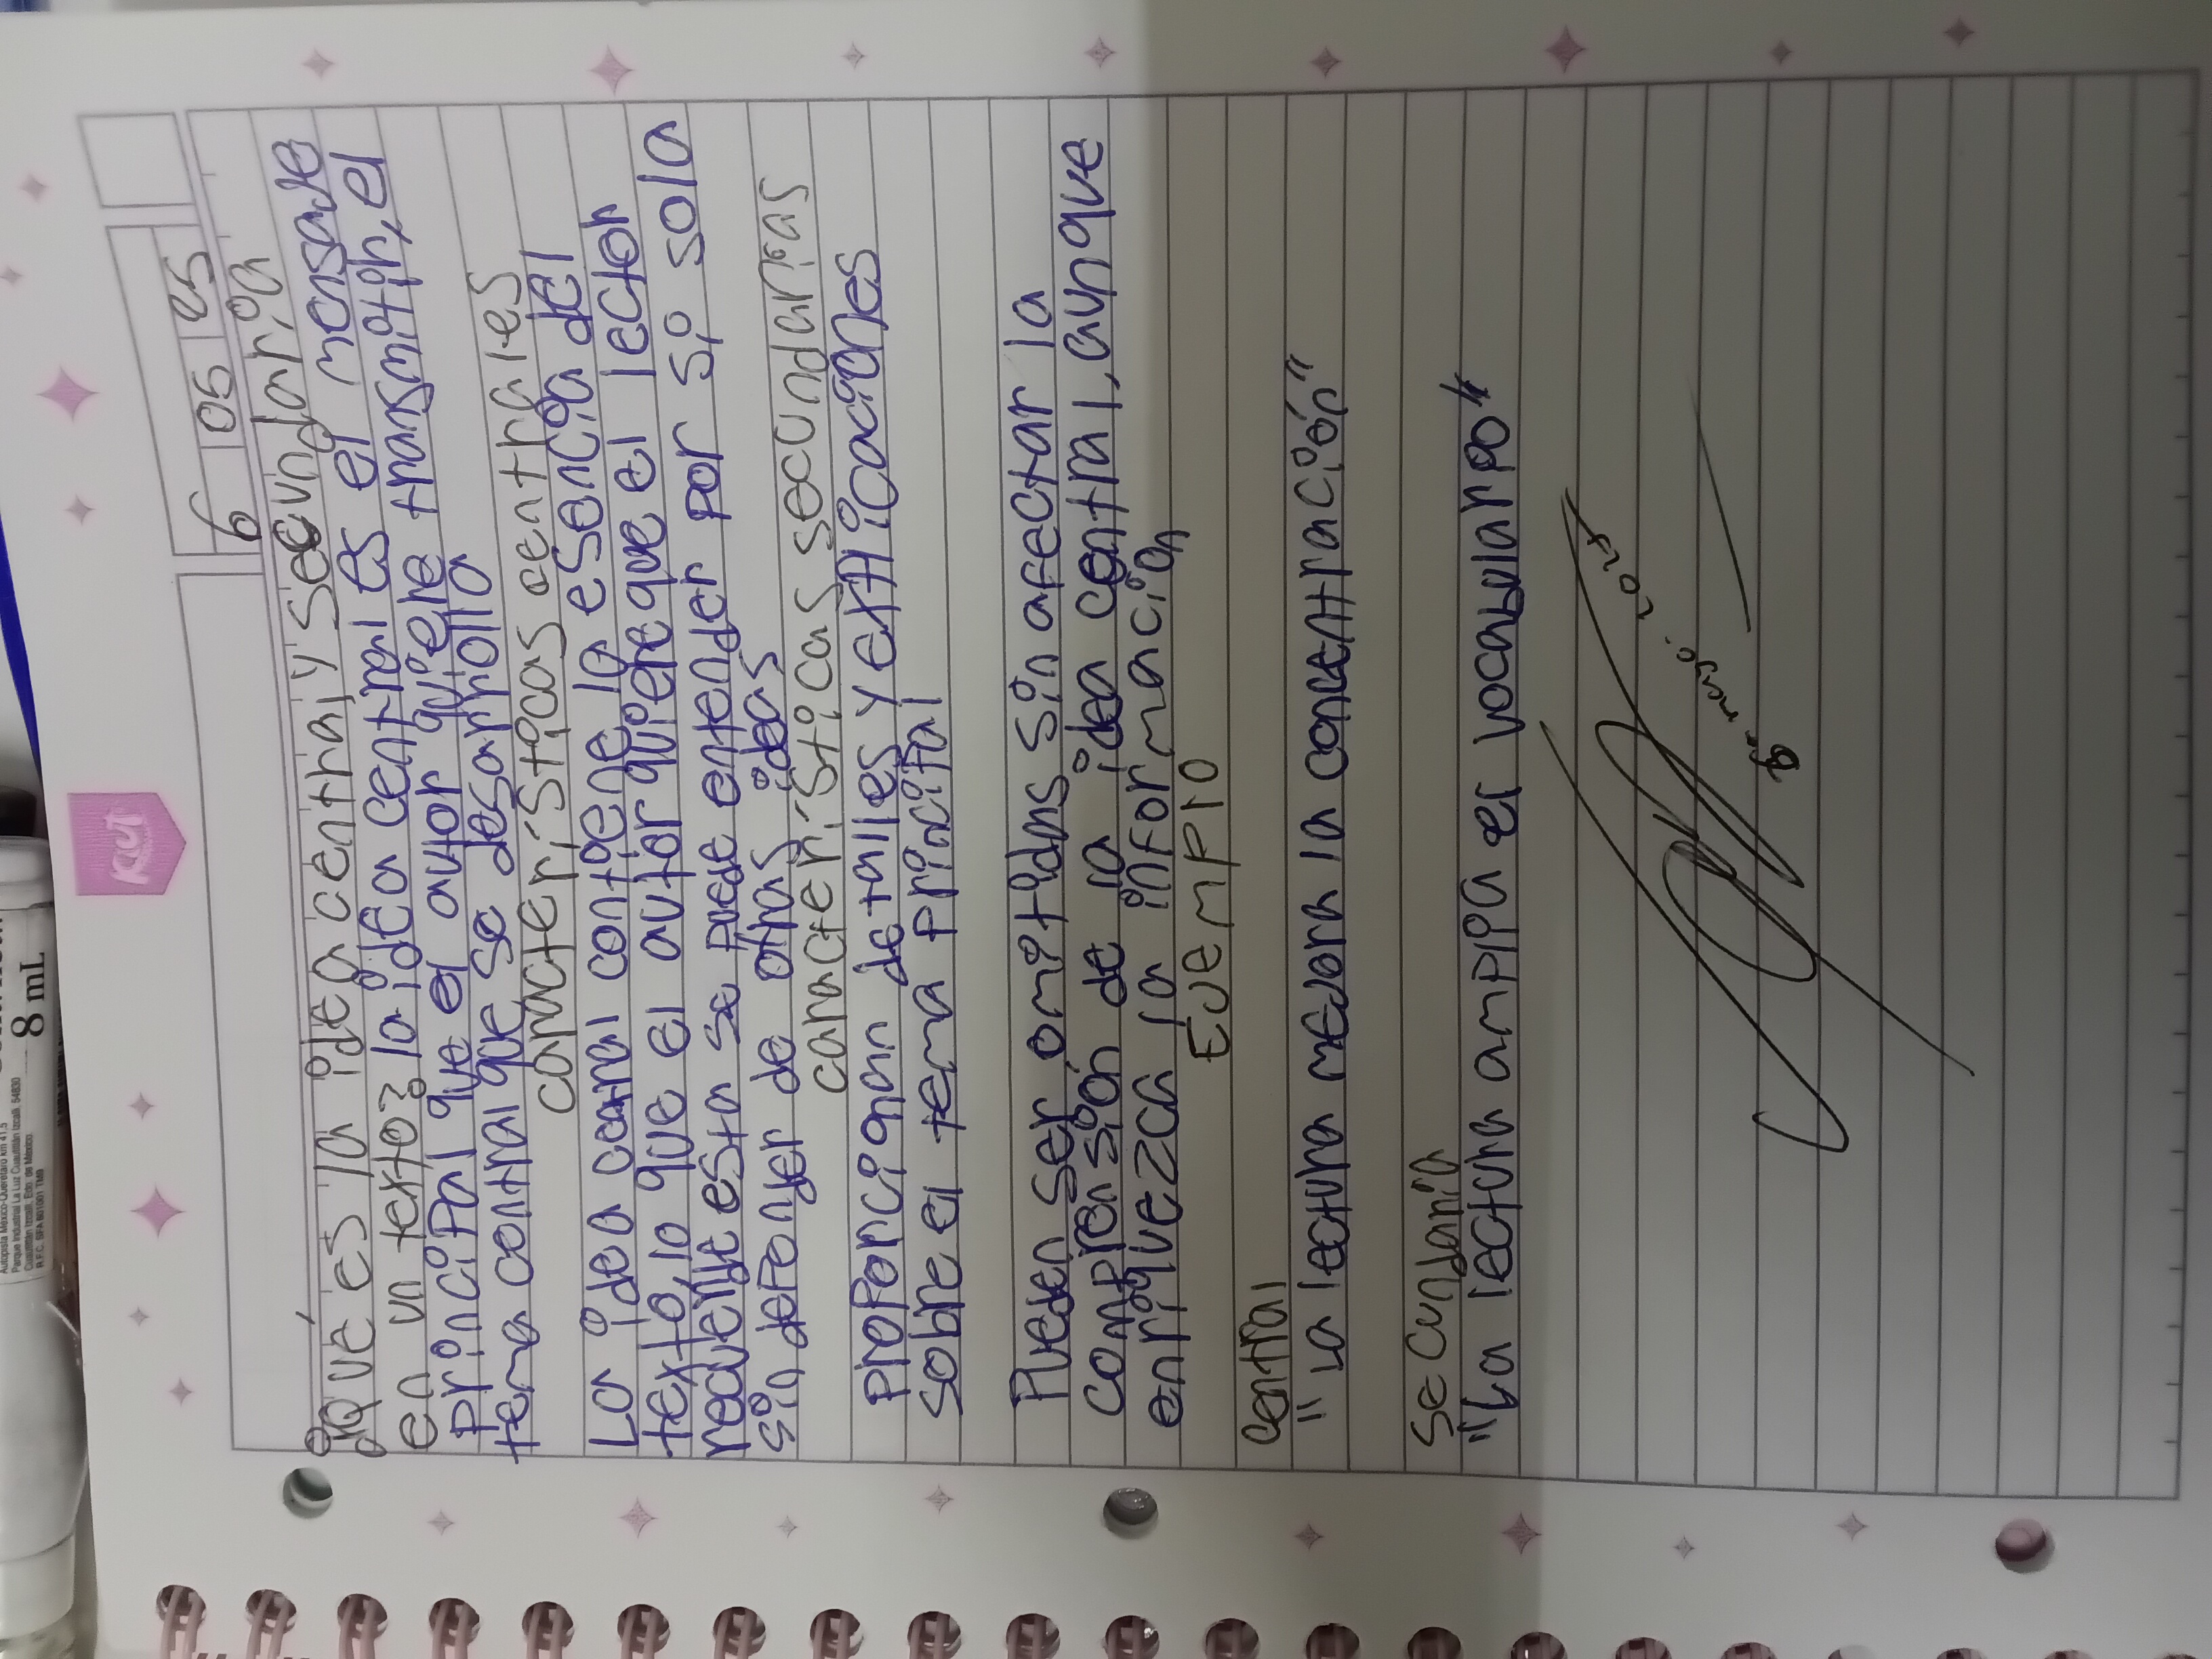 6 05 25
¿Qué es la idea central y secundaria
en un texto? la idea central es el mensaje
principal que el autor quiere transmitir, el
tema central que se desarrolla
características centrales
La idea cental contiene la esencia del
texto, lo que el autor quiere que el lector
recuerde esta se puede entender por si sola
sin depender de otras ideas
características secundarias
Proporcionan detalles y explicaciones
sobre el tema principal
Pueden ser omitidas sin afectar la
comprensión de la idea central, aunque
enriquezca la información
Ejemplo
Central
"La lectura mejora la concentración"
Secundaria
"La lectura amplia el vocabulario"
8 mL
Autopista México-Querétaro km 41.5
Parque Industrial La Luz Cuautitlán Izcalli, 54830
Cuautitlán Izcalli, Edo. de México.